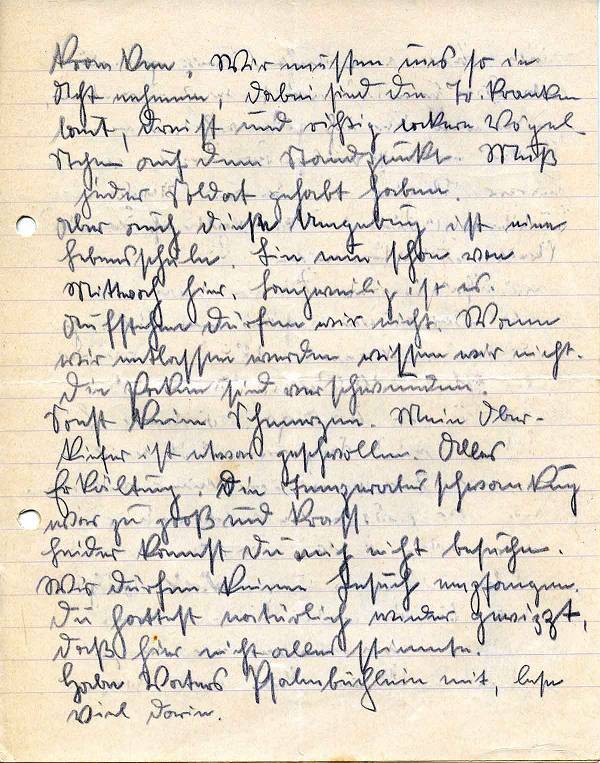 kranken. Wir müssen uns so in
Acht nehmen, dabei sind die Tr. kranken
laut, dreist und richtig lockere Vögel.
Stehen auf dem Standpunkt. Muß
jeder Soldat gehabt haben.
Aber auch diese Umgebung ist eine
Lebensschule. Bin nun schon von
Mittwoch hier. Langweilig ist es.
Aufstehen dürfen wir nicht. Wann
wir entlassen werden wissen wir nicht.
Die sind verschwunden.
Sonst keine Schmerzen. Mein Ober-
kiefer ist etwas geschwollen. Alles
Erkältung. Die Temperaturschwankung
war zu groß und kraß.
Leider kannst Du mich nicht besuchen.
Wir dürfen keinen Besuch empfangen.
Du hattest natürlich wieder
daß hier nicht alles stimmte.
Habe Vaters Psalmbüchlein mit, lese
viel darin.